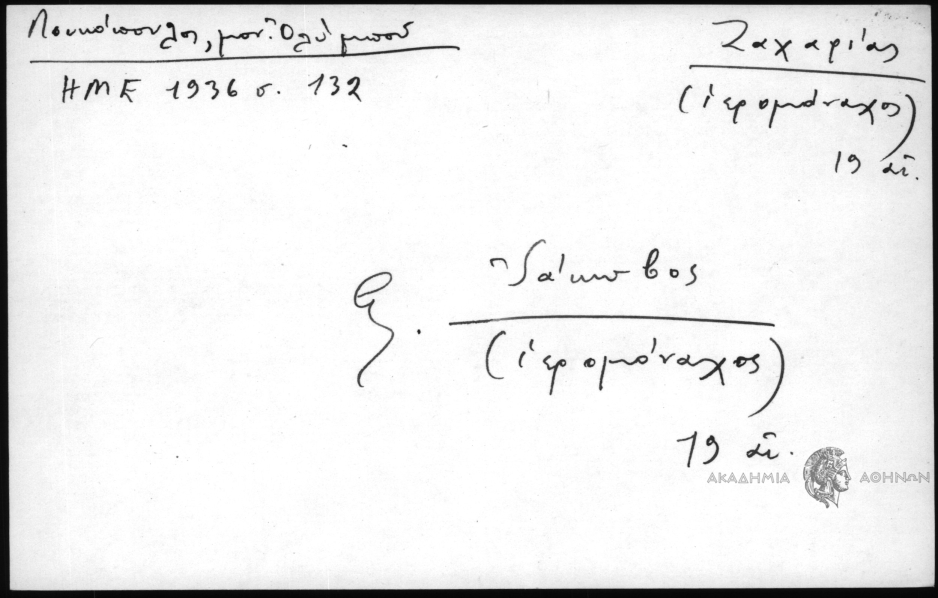 Λουκόπουλος, μον. Ὀλύμπου
ΗΜΕ 1936 σ. 132
Ζαχαρίας
(ἱερομόναχος)
19 αἰ.
βλ. Ἰάκωβος
(ἱερομόναχος)
19 αἰ.
ΑΚΑΔΗΜΙΑ ΑΘΗΝΩΝ